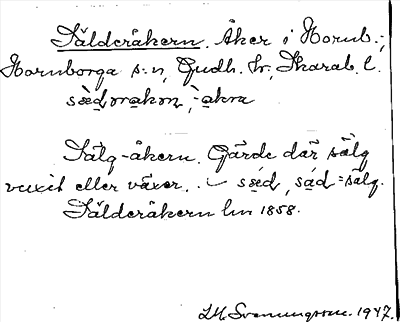 Sälderåkern. Åker i Hornb.,
Hornborga s:n, Gudh. hr, Skarab. l.
sædrakrn, -akra
Sälg-åkern. Gärde där sälg
vuxit eller växer. sæd, sád = sälg.
Sälderåkern lm 1858.
1947.